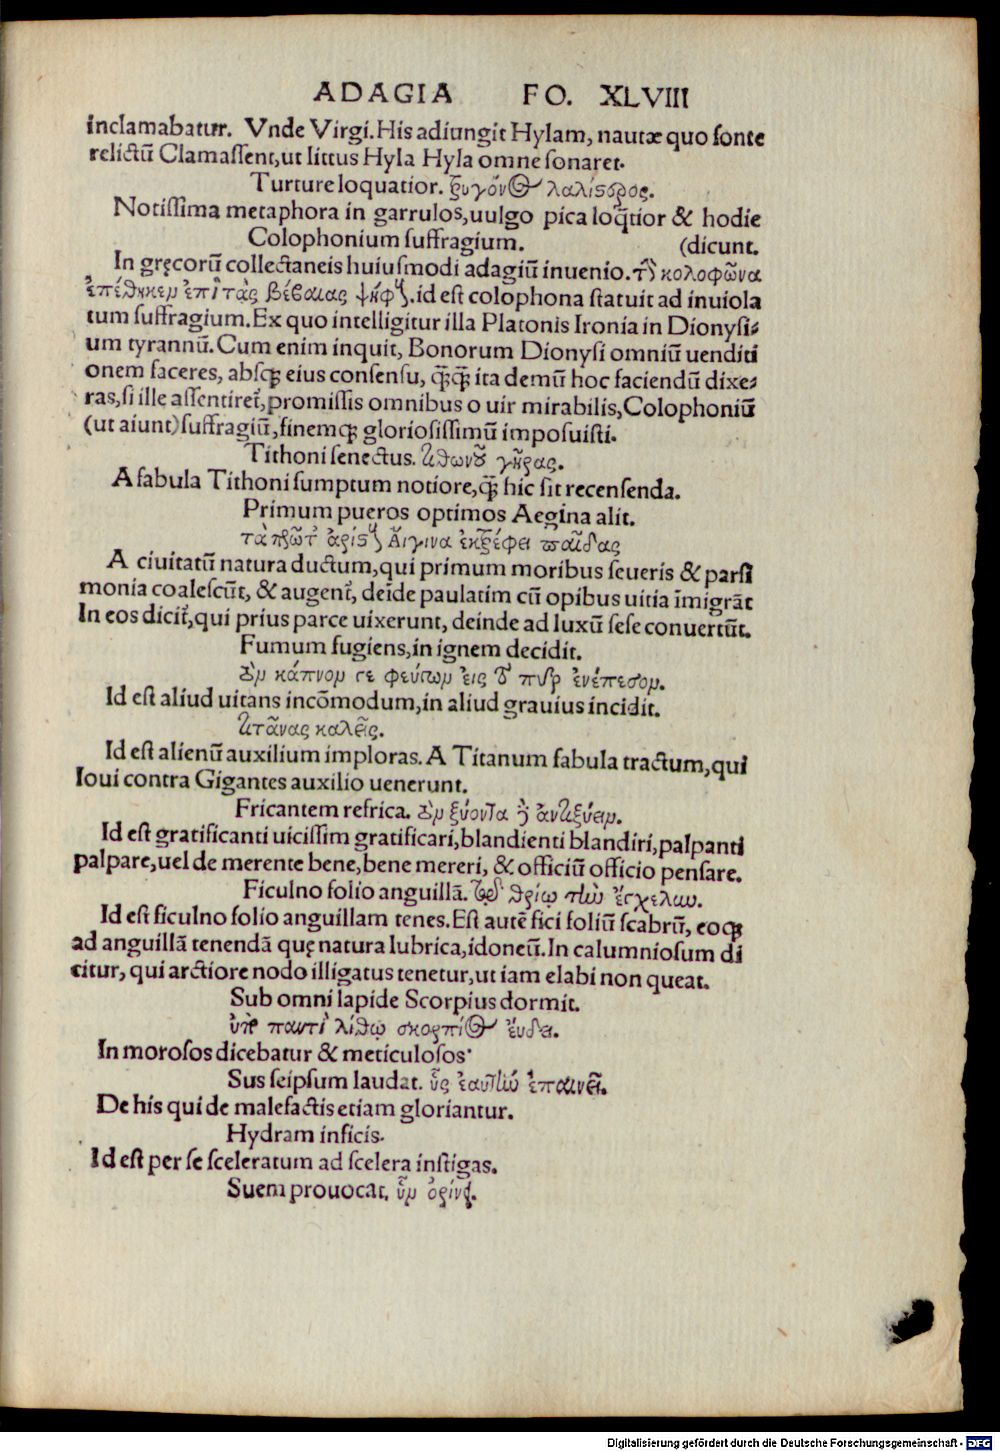 ADAGIA FO. XLVIII
inclamabatur. Vnde Virgi. His adiungit Hylam, nautæ quo fonte
relictũ Clamaſſent, ut littus Hyla Hyla omne ſonaret.
Turture loquatior. τρυγόνος λαλίστερος.
Notiſſima metaphora in garrulos, uulgo pica loq̃tior & hodie
Colophonium ſuffragium. (dicunt.
In gręcorũ collectaneis huiuſmodi adagiũ inuenio. τὸν κολοφῶνα
ἐπέθηκεν ἐπὶ τὰς βέβαιας ψήφους. id eſt colophona ſtatuit ad inuiola
tum ſuffragium. Ex quo intelligitur illa Platonis Ironia in Dionyſi⸗
um tyrannũ. Cum enim inquit, Bonorum Dionyſi omniũ uenditi
onem faceres, abſqꝫ eius conſenſu, q̃q̃ ita demũ hoc faciendũ dixe⸗
ras, ſi ille aſſentiret̃, promiſſis omnibus o uir mirabilis, Colophoniũ
(ut aiunt) ſuffragiũ, finemqꝫ glorioſiſſimũ impoſuiſti.
Tithoni ſenectus. τιθωνοῦ γῆρας.
A fabula Tithoni ſumptum notiore, q̃ hic ſit recenſenda.
Primum pueros optimos Aegina alit.
τὰ πρῶτ' ἀρίστους Αἴγινα ἐκτρέφει παῖδας
A ciuitatũ natura ductum, qui primum moribus ſeueris & parſi
monia coaleſcũt, & augent̃, deĩde paulatim cũ opibus uitia ĩmigrãt
In eos dicit̃, qui prius parce uixerunt, deinde ad luxũ ſeſe conuertũt.
Fumum fugiens, in ignem decidit.
τὸν κάπνον γε φεύγων εἰς τὸ πῦρ ἐνέπεσον.
Id eſt aliud uitans incõmodum, in aliud grauius incidit.
τιτᾶνας καλεῖς.
Id eſt alienũ auxilium imploras. A Titanum fabula tractum, qui
Ioui contra Gigantes auxilio uenerunt.
Fricantem refrica. τὸν ξύοντα δ' ἀντιξύειν.
Id eſt gratificanti uiciſſim gratificari, blandienti blandiri, palpanti
palpare, uel de merente bene, bene mereri, & officiũ officio penſare.
Ficulno folio anguillã. τῷ θρίῳ τὴν ἔγχελυν.
Id eſt ficulno folio anguillam tenes. Eſt autẽ fici foliũ ſcabrũ, eoqꝫ
ad anguillã tenendã quę natura lubrica, idoneũ. In calumnioſum di
citur, qui arctiore nodo illigatus tenetur, ut iam elabi non queat.
Sub omni lapide Scorpius dormit.
ὑπὸ παντὶ λίθῳ σκορπίος ἕυδει.
In moroſos dicebatur & meticuloſos.
Sus ſeipſum laudat. ὗς ἑαυτὸν ἐπαινεῖ.
De his qui de malefactis etiam gloriantur.
Hydram inficis.
Id eſt per ſe ſceleratum ad ſcelera inſtigas.
Suem prouocat. ὗν ὀρίνει.
Digitalisierung gefördert durch die Deutsche Forschungsgemeinschaft - DFG